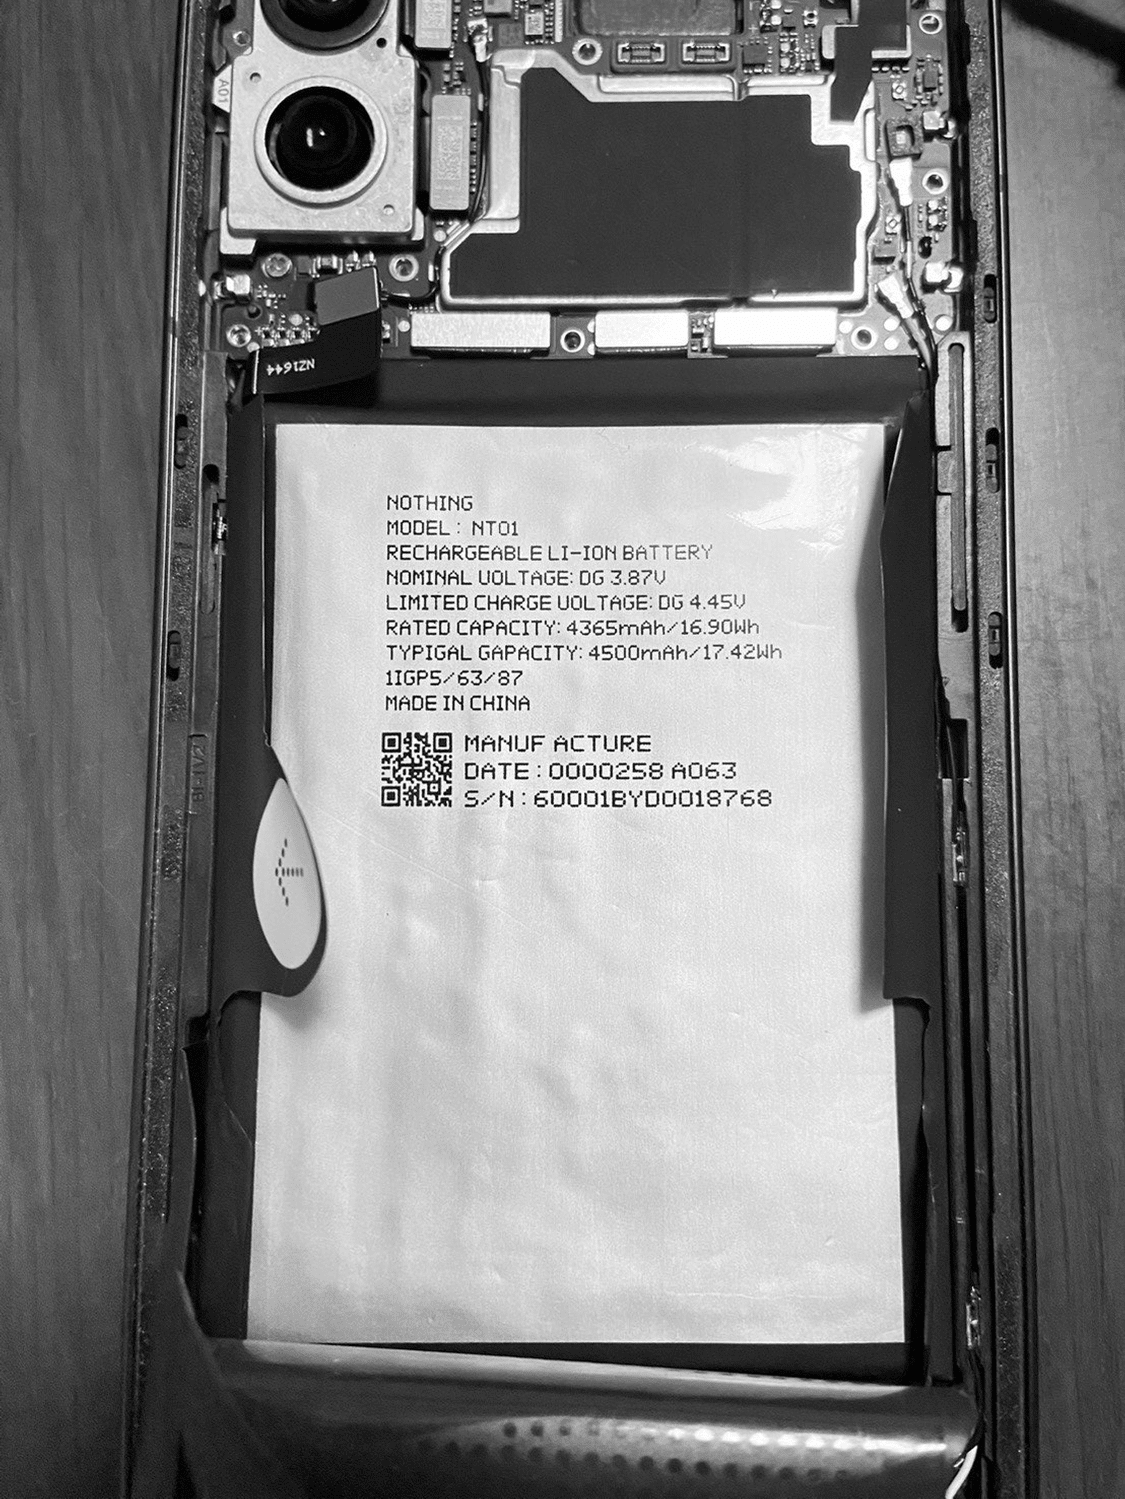 A01
NZ1644
NOTHING
MODEL : NT01
RECHARGEABLE LI-ION BATTERY
NOMINAL UOLTAGE: DG 3.87V
LIMITED CHARGE UOLTAGE: DG 4.45V
RATED CAPACITY: 4365mAh/16.90Wh
TYPIGAL GAPACITY: 4500mAh/17.42Wh
1IGP5/63/87
MADE IN CHINA
MANUF ACTURE
DATE : 0000258 A063
S/N : 60001BYD0018768